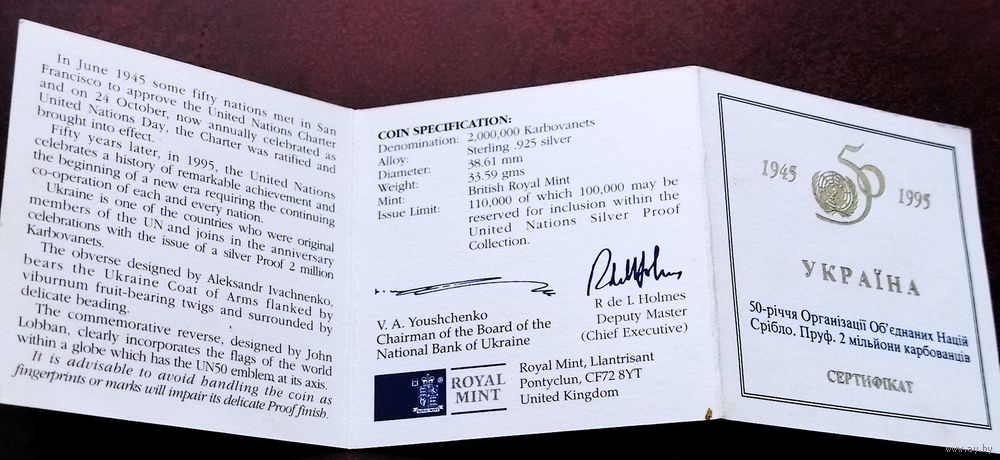 In June 1945 some fifty nations met in San
Francisco to approve the United Nations Charter
and on 24 October, now annually celebrated as
United Nations Day, the Charter was ratified and
brought into effect.
Fifty years later, in 1995, the United Nations
celebrates a history of remarkable achievement and
the beginning of a new era requiring the continuing
co-operation of each and every nation.
Ukraine is one of the countries who were original
members of the UN and joins in the anniversary
celebrations with the issue of a silver Proof 2 million
Karbovanets.
The obverse designed by Aleksandr Ivachnenko,
bears the Ukraine Coat of Arms flanked by
viburnum fruit-bearing twigs and surrounded by
delicate beading.
The commemorative reverse, designed by John
Lobban, clearly incorporates the flags of the world
within a globe which has the UN50 emblem at its axis.
It is advisable to avoid handling the coin as
fingerprints or marks will impair its delicate Proof finish.
COIN SPECIFICATION:
Denomination: 2,000,000 Karbovanets
Alloy: Sterling .925 silver
Diameter: 38.61 mm
Weight: 33.59 gms
Mint: British Royal Mint
Issue Limit: 110,000 of which 100,000 may be
reserved for inclusion within the
United Nations Silver Proof
Collection.
V. A. Youshchenko
Chairman of the Board of the
National Bank of Ukraine
R de L Holmes
Deputy Master
(Chief Executive)
ROYAL
MINT
Royal Mint, Llantrisant
Pontyclun, CF72 8YT
United Kingdom
1945 50 1995
УКРАЇНА
50-річчя Організації Об'єднаних Націй
Срібло. Пруф. 2 мільйони карбованців
СЕРТИФІКАТ
www.ay.by